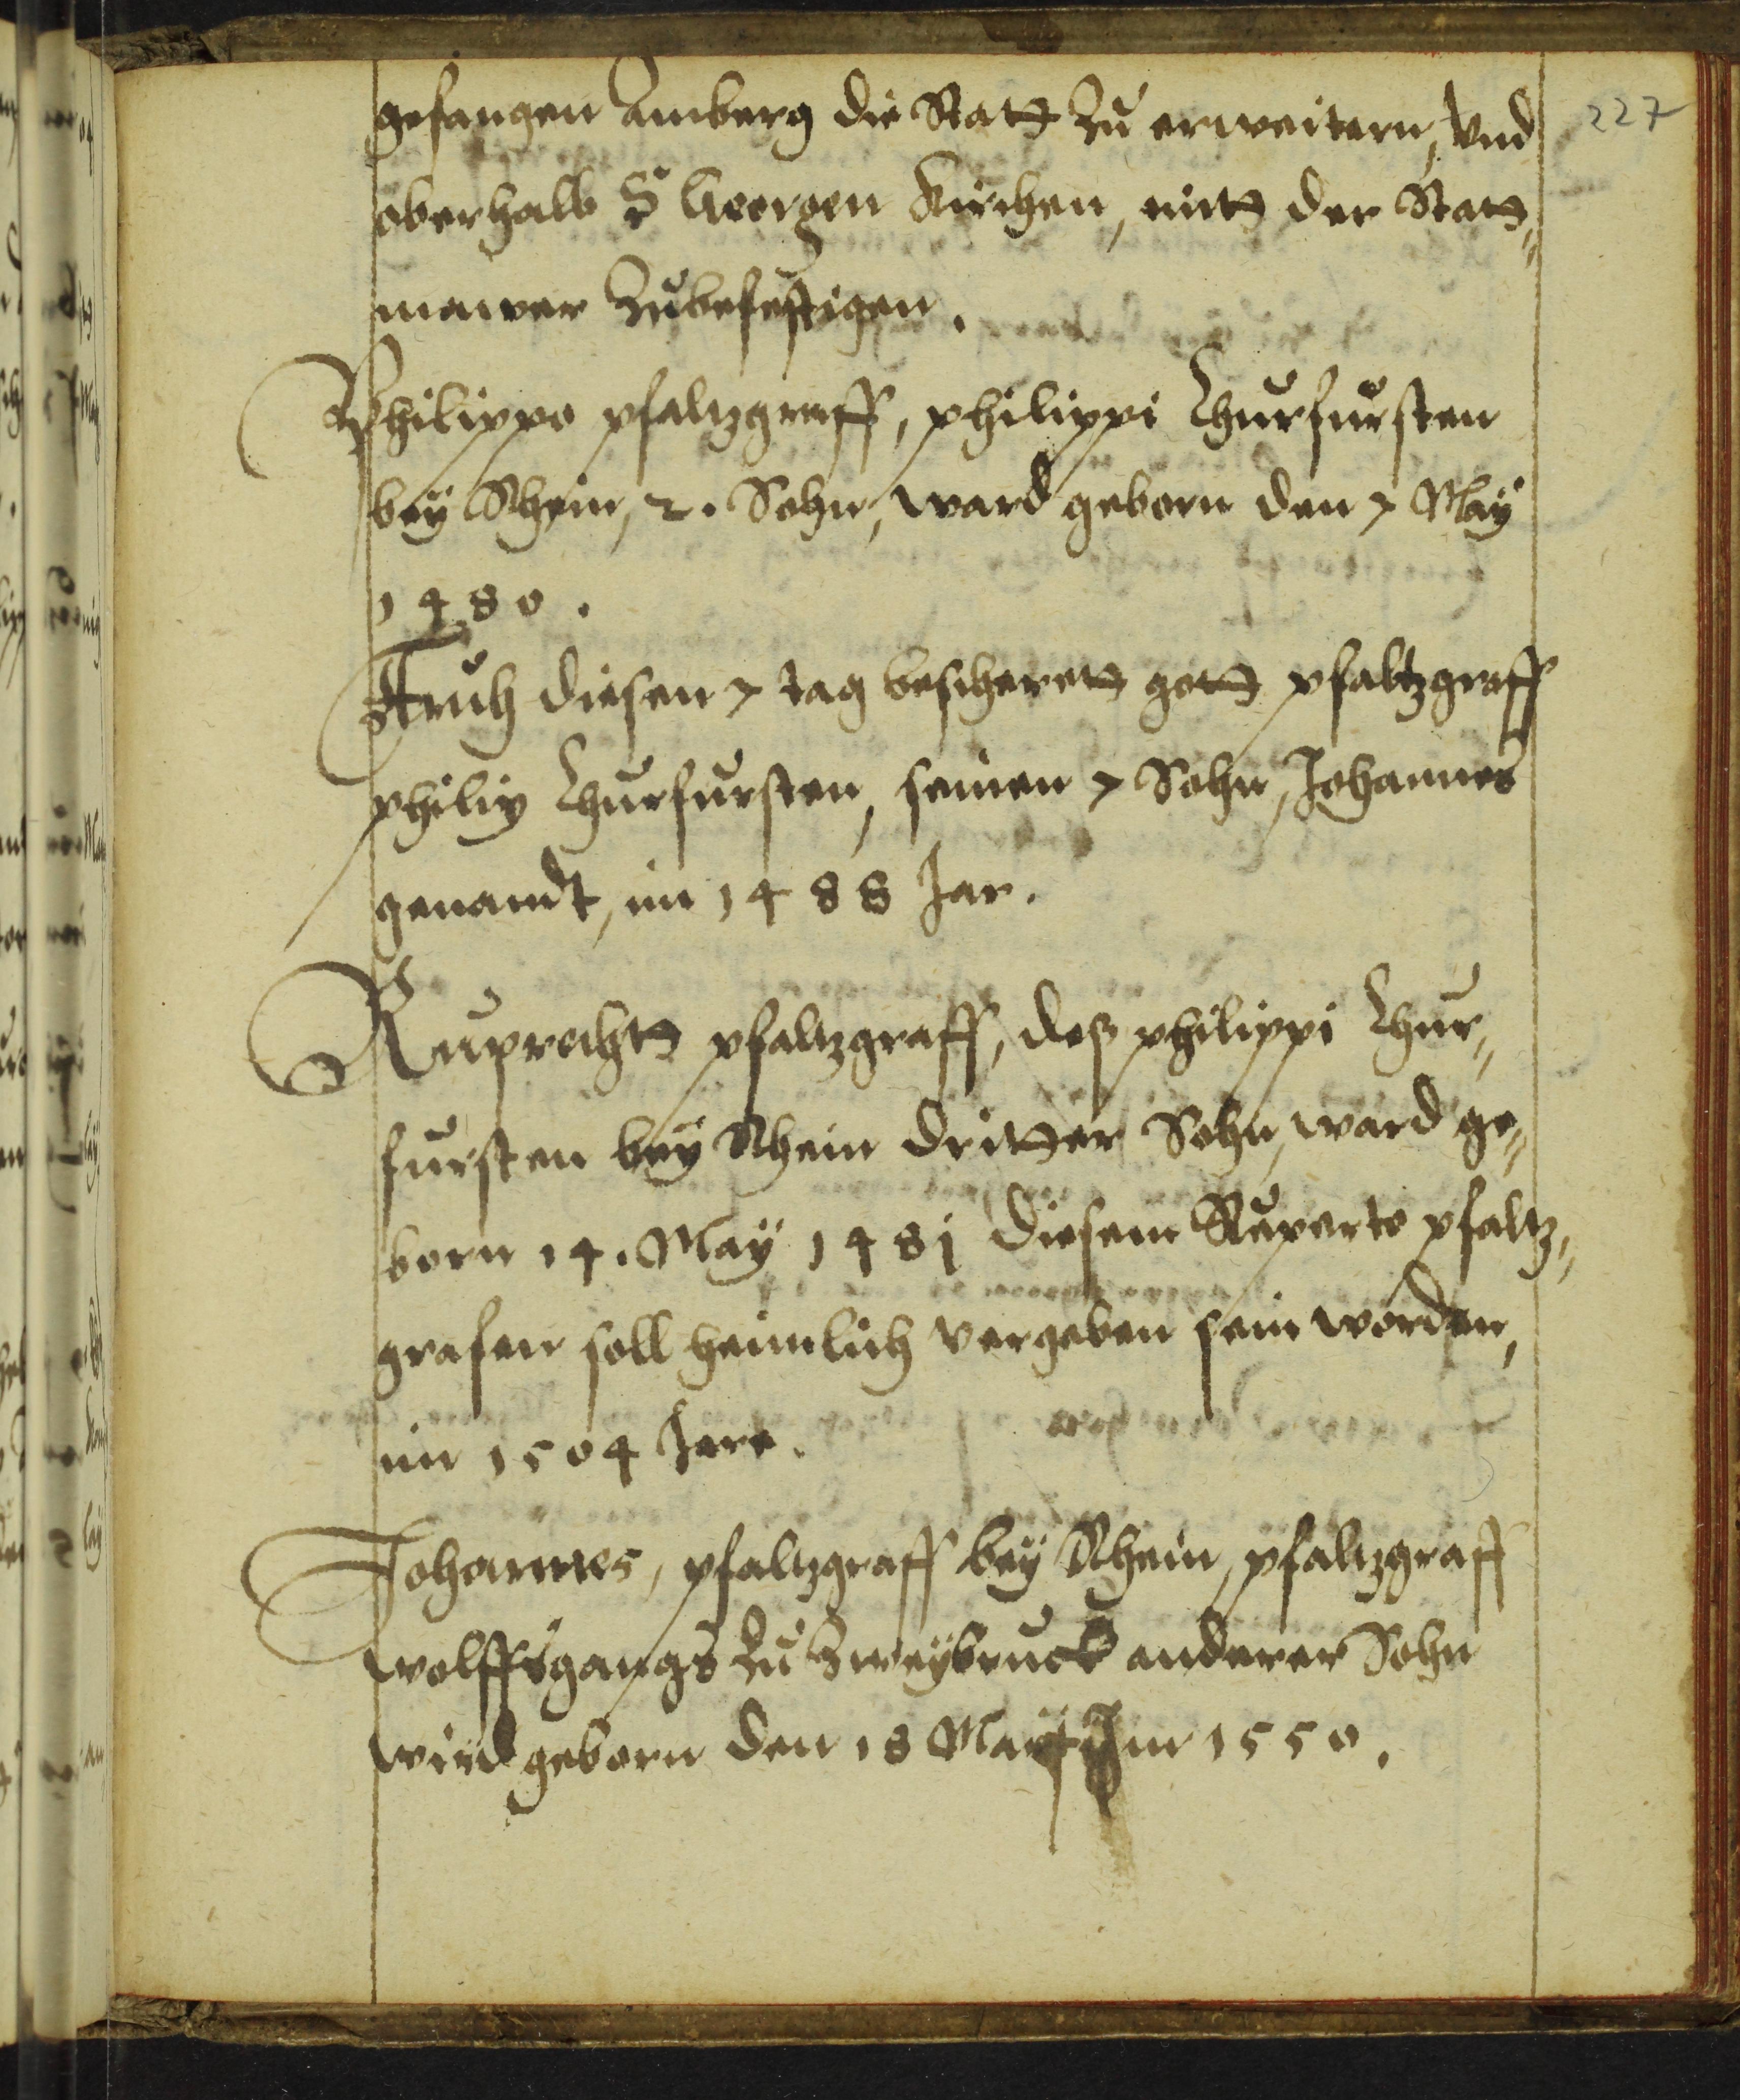 227
gefangen Amberg die Statt zu erweitern, Vnd
oberhalb S. Georgen Kirchen, mitt der Statt„
mawer zubefestigen.
Philippo pfaltzgraff, philippi Churfursten
beÿ Rhein, 2. Sohn, ward geborn den 7 Maÿ
1480.
Auch diesen 7 tag bescherett gott pfaltzgraff
philip Churfursten, seinen 7 Sohn, Johannes
genandt, im 1488 Jar.
Ruprecht pfaltzgraff, deß philippi Chur„
fursten beÿ Rhein dritter Sohn, ward ge„
born 14. Maÿ 1481 diesem Ruperto pfaltz„
grafen soll heimlich vergeben sein worden,
im 1504 Jare.
Johannes, pfaltzgraff beÿ Rhein, pfaltzgraff
wolffsgangs zu Zweÿbruck anderer Sohn
wird geborn den 18 Maÿ Im 1550.